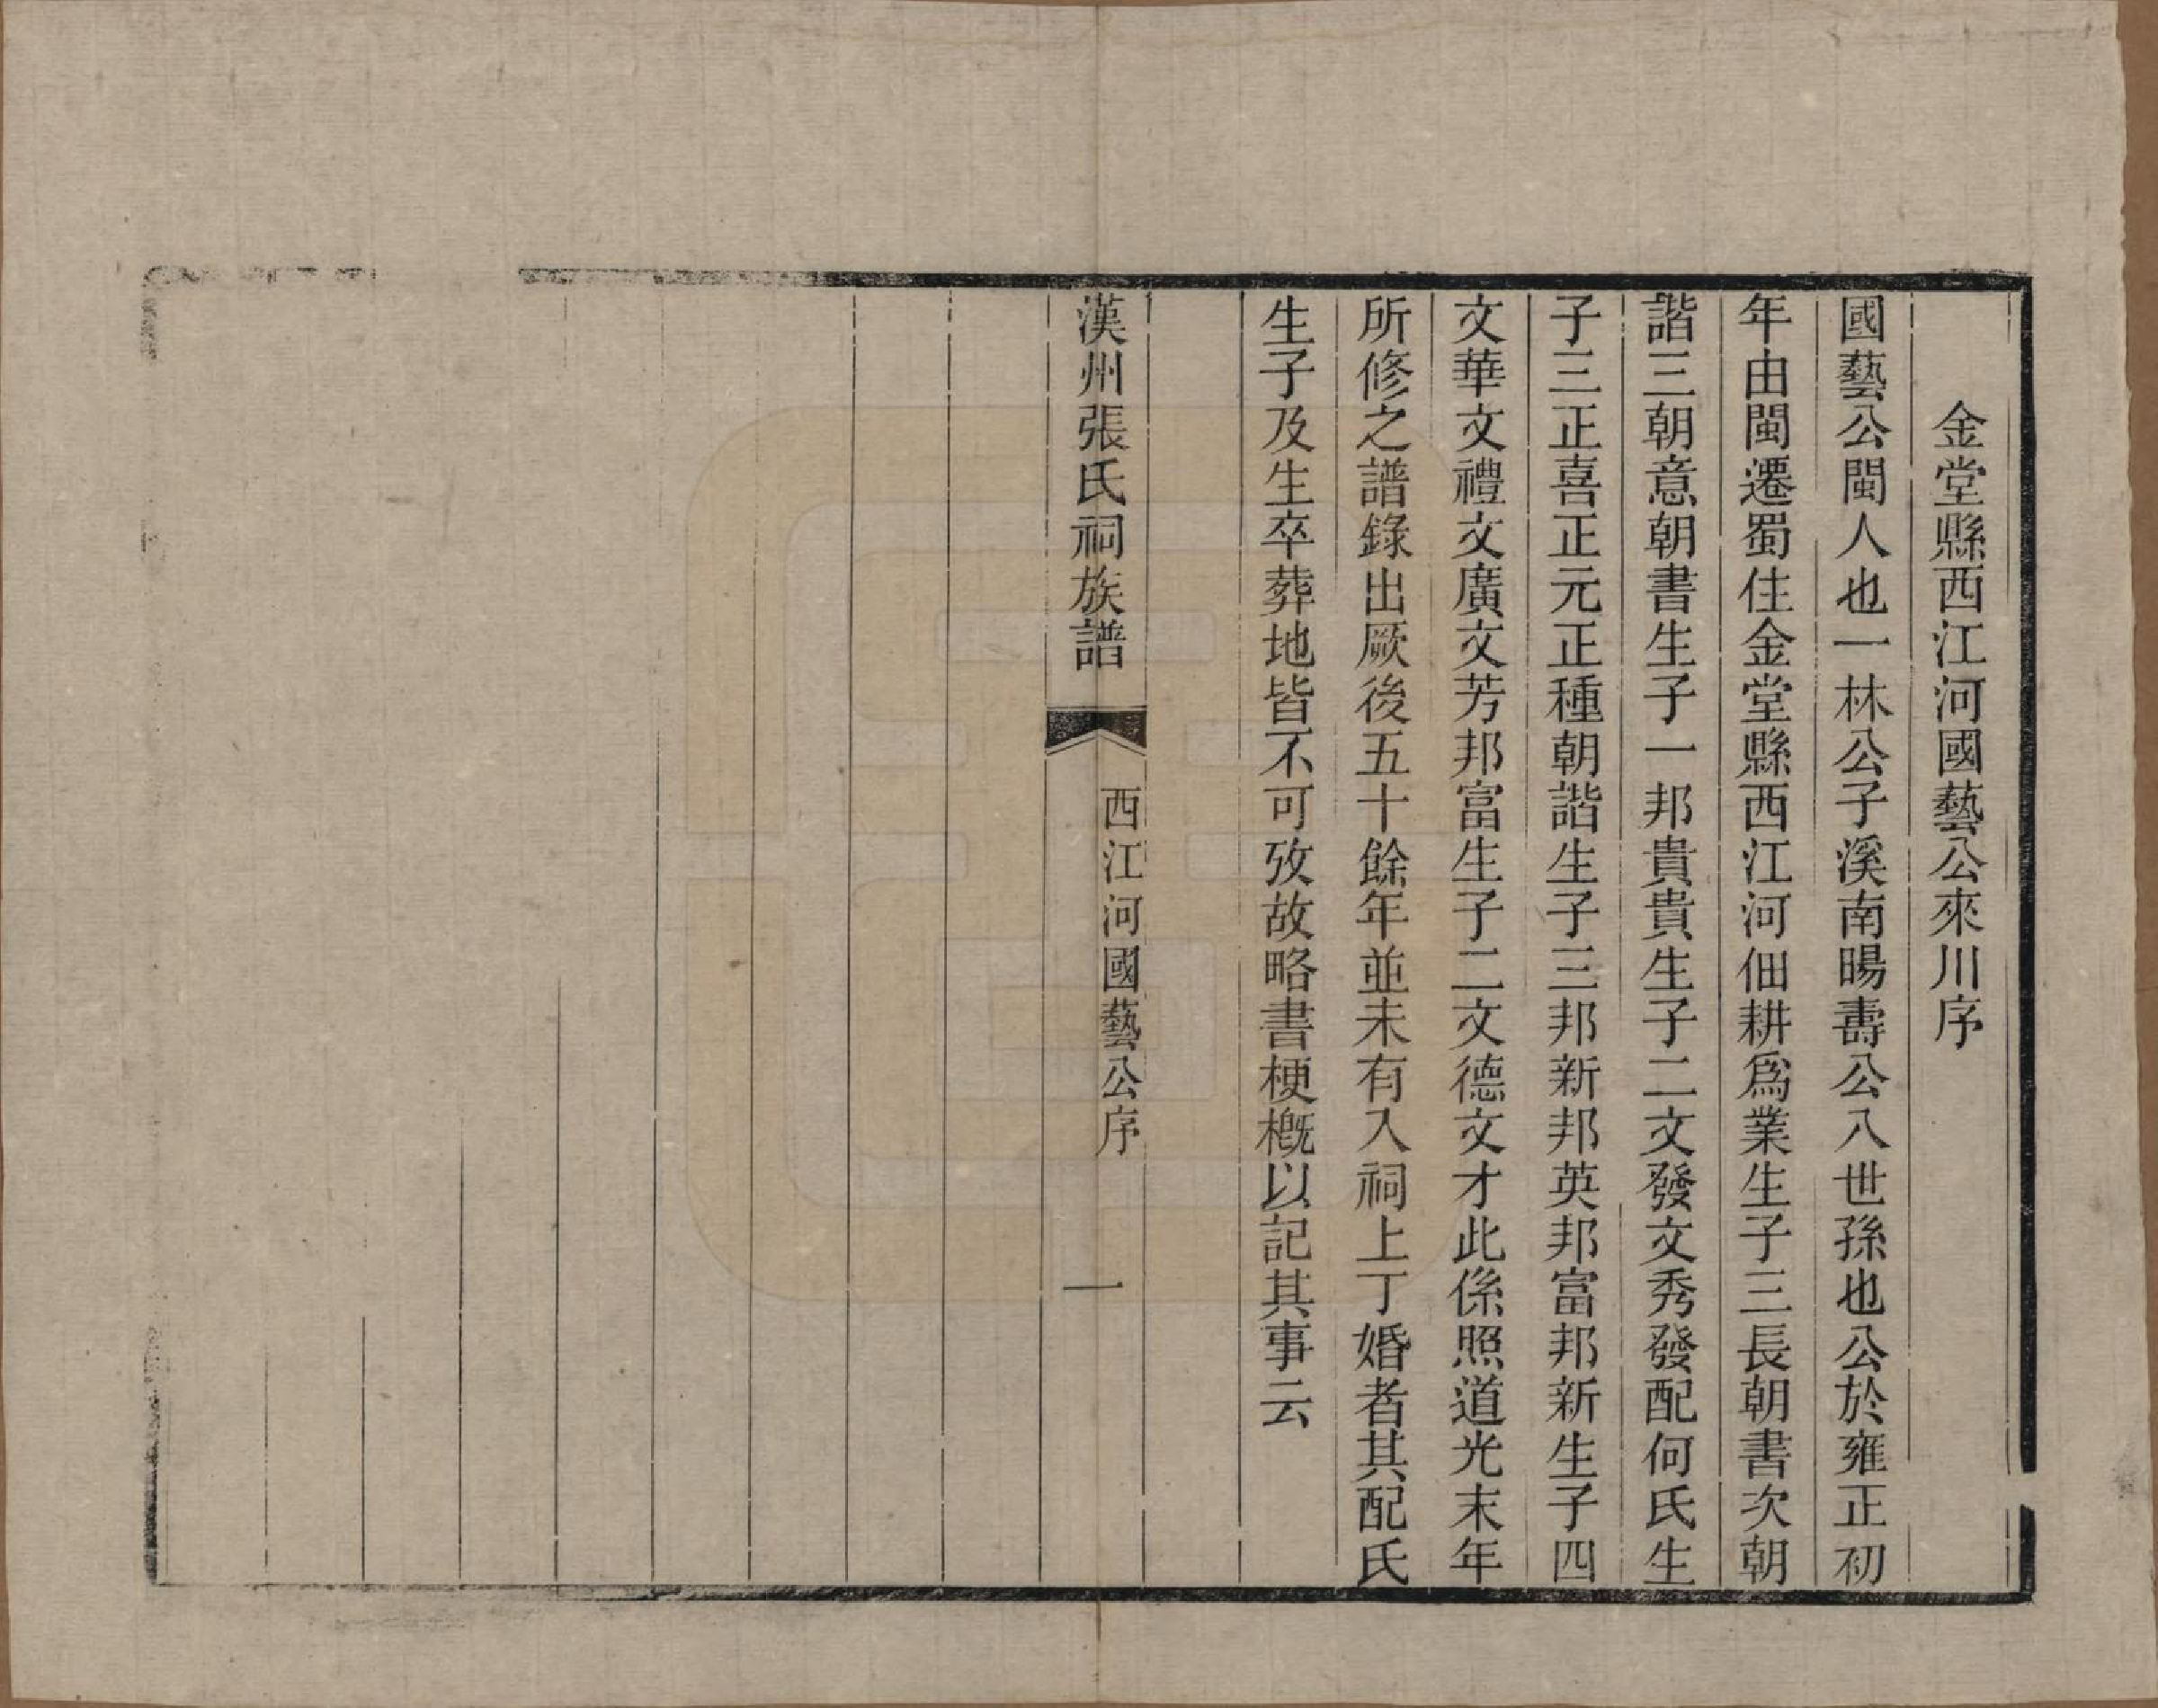 金堂縣西江河國藝公來川序
國藝公閩人也一林公子溪南暘壽公八世孫也公於雍正初
年由閩遷蜀住金堂縣西江河佃耕爲業生子三長朝書次朝
諧三朝意朝書生子一邦貴貴生子二文發文秀發配何氏生
子三正喜正元正種朝諧生子三邦新邦英邦富邦新生子四
文華文禮文廣文芳邦富生子二文德文才此係照道光末年
所修之譜錄出厥後五十餘年並未有入祠上丁婚者其配氏
生子及生卒葬地皆不可攷故略書梗概以記其事云
漢州張氏祠族譜
西江河國藝公序
一